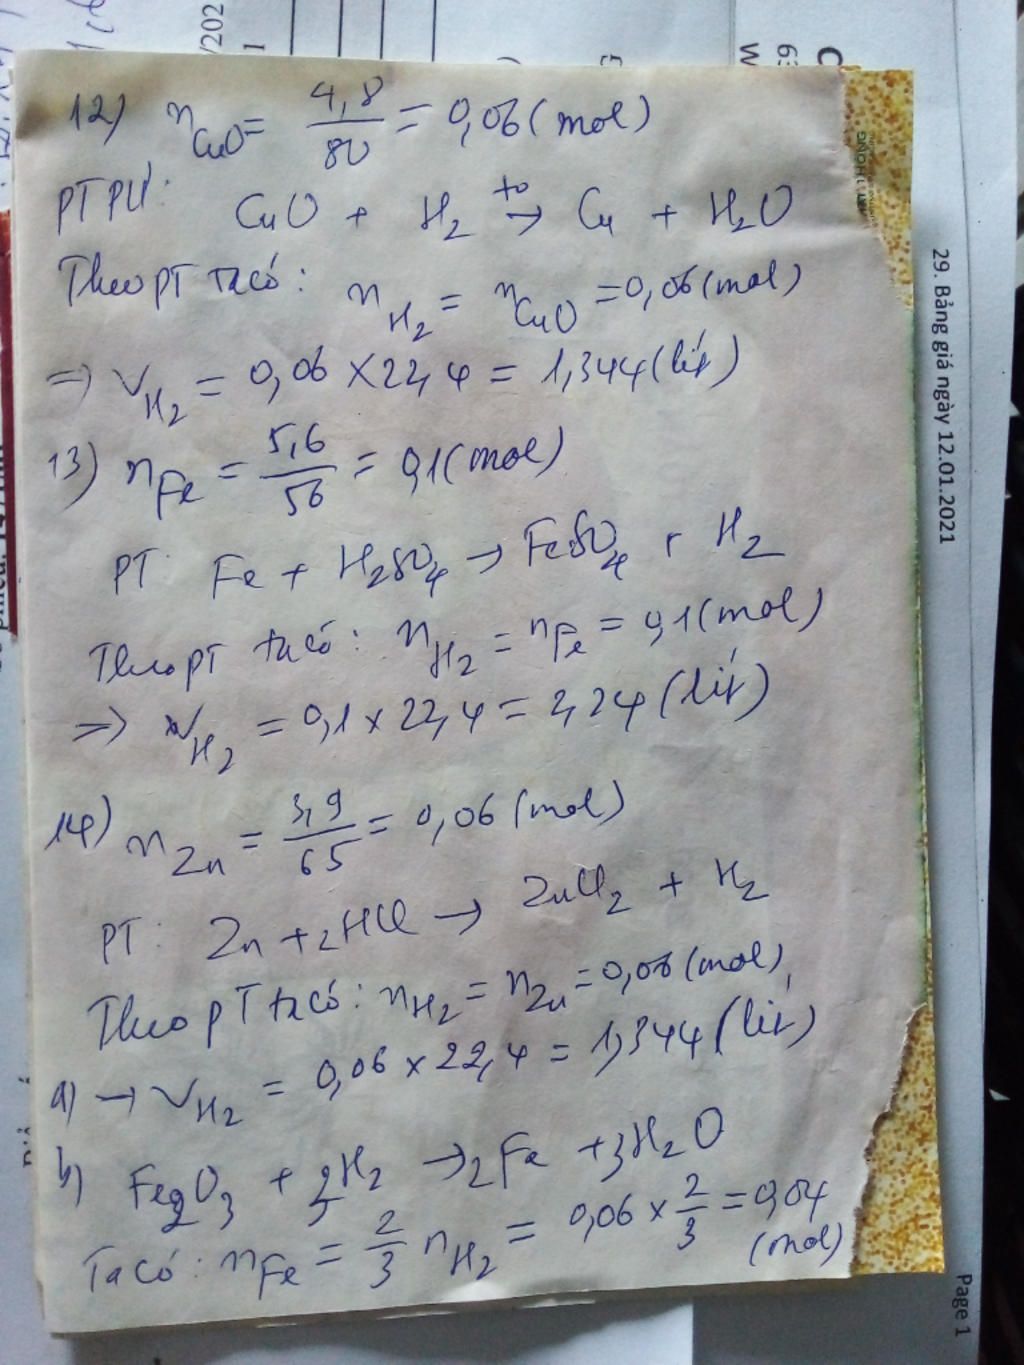 12) nCuO = 4,8/80 = 0,06 (mol)
PTPƯ: CuO + H2 →(to) Cu + H2O
Theo PT ta có: nH2 = nCuO = 0,06 (mol)
=> VH2 = 0,06 x 22,4 = 1,344 (lít)
13) nFe = 5,6/56 = 0,1 (mol)
PT: Fe + H2SO4 → FeSO4 + H2
Theo PT ta có: nH2 = nFe = 0,1 (mol)
=> VH2 = 0,1 x 22,4 = 2,24 (lít)
14) nZn = 3,9/65 = 0,06 (mol)
PT: Zn + 2HCl → ZnCl2 + H2
Theo PT ta có: nH2 = nZn = 0,06 (mol)
a) → VH2 = 0,06 x 22,4 = 1,344 (lít)
b) Fe2O3 + 3H2 → 2Fe + 3H2O
Ta có: nFe = 2/3 nH2 = 0,06 x 2/3 = 0,04
(mol)
29. Bảng giá ngày 12.01.2021
Page 1